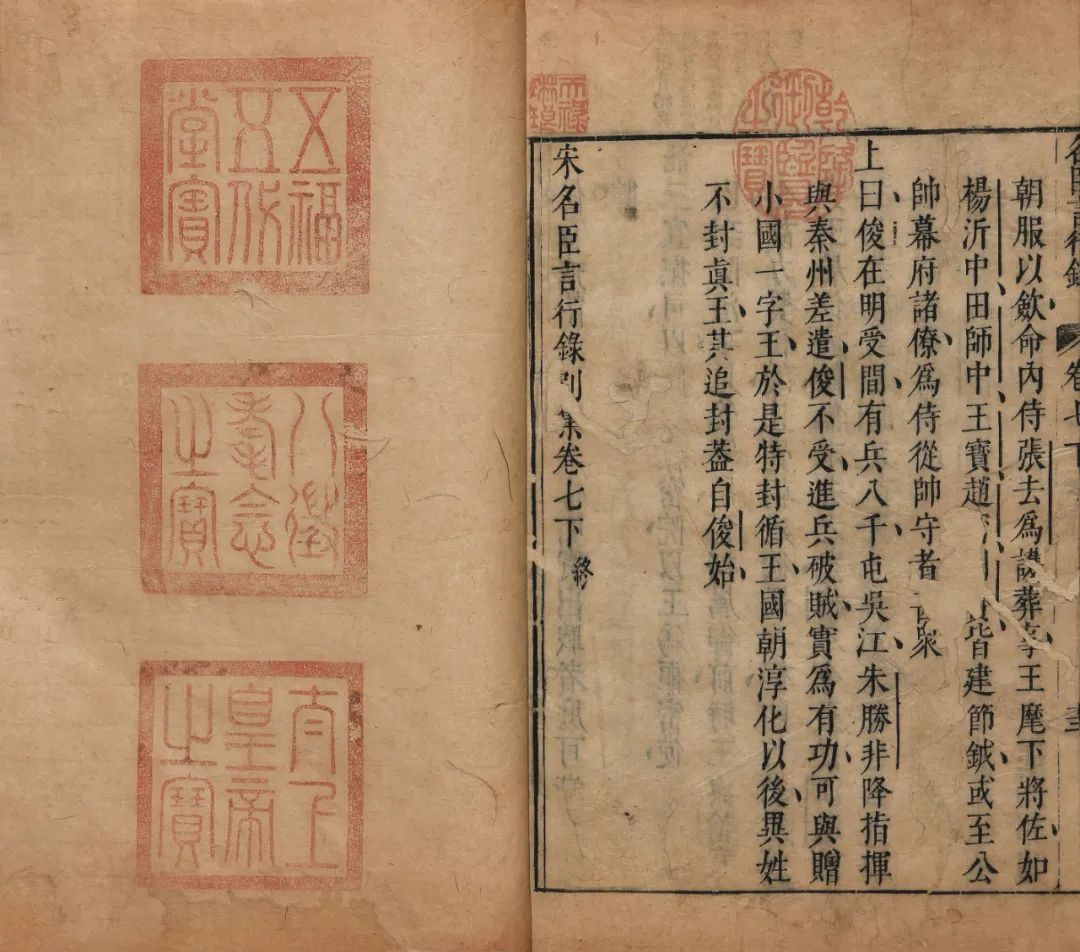 名臣言行錄 卷七下
朝服以斂命內侍張去爲護葬事王麾下將佐如
楊沂中田師中王寶趙 皆建節鉞或至公
帥幕府諸僚爲侍從帥守者 衆
上曰俊在明受間有兵八千屯吳江朱勝非降指揮
與秦州差遣俊不受進兵破賊實爲有功可與贈
小國一字王於是特封循王國朝淳化以後異姓
不封眞王其追封葢自俊始
宋名臣言行錄別集卷七下 終
乾隆御覽之寶
天祿琳琅
五福五代堂寶
八徵耄念之寶
太上皇帝之寶